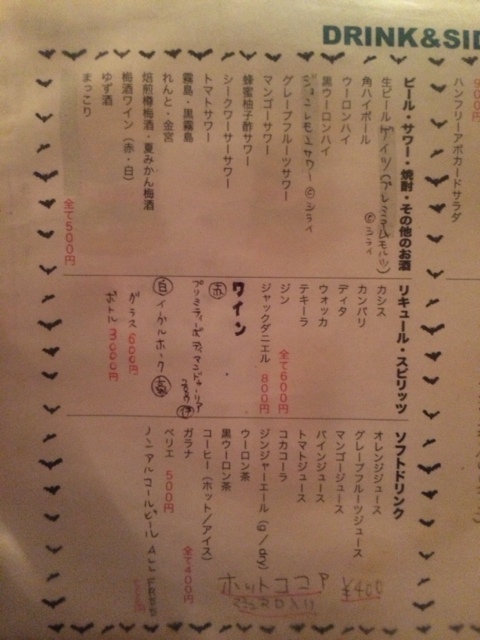 DRINK&SID
900円
ハンフリーアボカードサラダ
ビール・サワー・焼酎・その他のお酒
生ビール(プレミアムモルツ)
角ハイボール
ウーロンハイ
黒ウーロンハイ
グレープフルーツサワー
マンゴーサワー
蜂蜜柚子酢サワー
シークワーサーサワー
トマトサワー
霧島・黒霧島
れんと・金宮
焙煎樽梅酒・夏みかん梅酒
梅酒ワイン(赤・白)
ゆず酒
まっこり
全て500円
リキュール・スピリッツ
カシス
カンパリ
ディタ
ウォッカ
テキーラ
ジン
全て600円
ジャックダニエル 800円
ワイン
赤
白
グラス 600円
ボトル 3000円
ソフトドリンク
オレンジジュース
グレープフルーツジュース
マンゴージュース
パインジュース
トマトジュース
コカコーラ
ジンジャーエール(g/dry)
ウーロン茶
黒ウーロン茶
コーヒー(ホット/アイス)
ガラナ
全て400円
ペリエ 500円
ノンアルコールビール ALL FREE
ホットココア ¥400